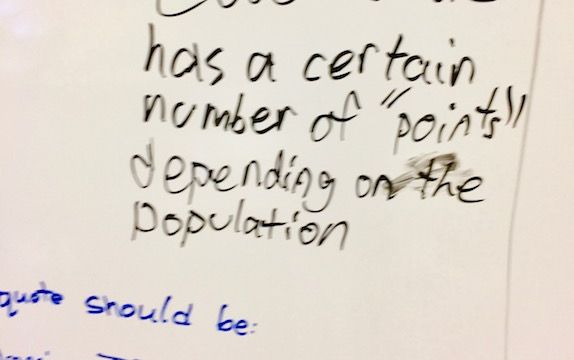 has a certain
number of "points"
depending on the
population
quote should be: